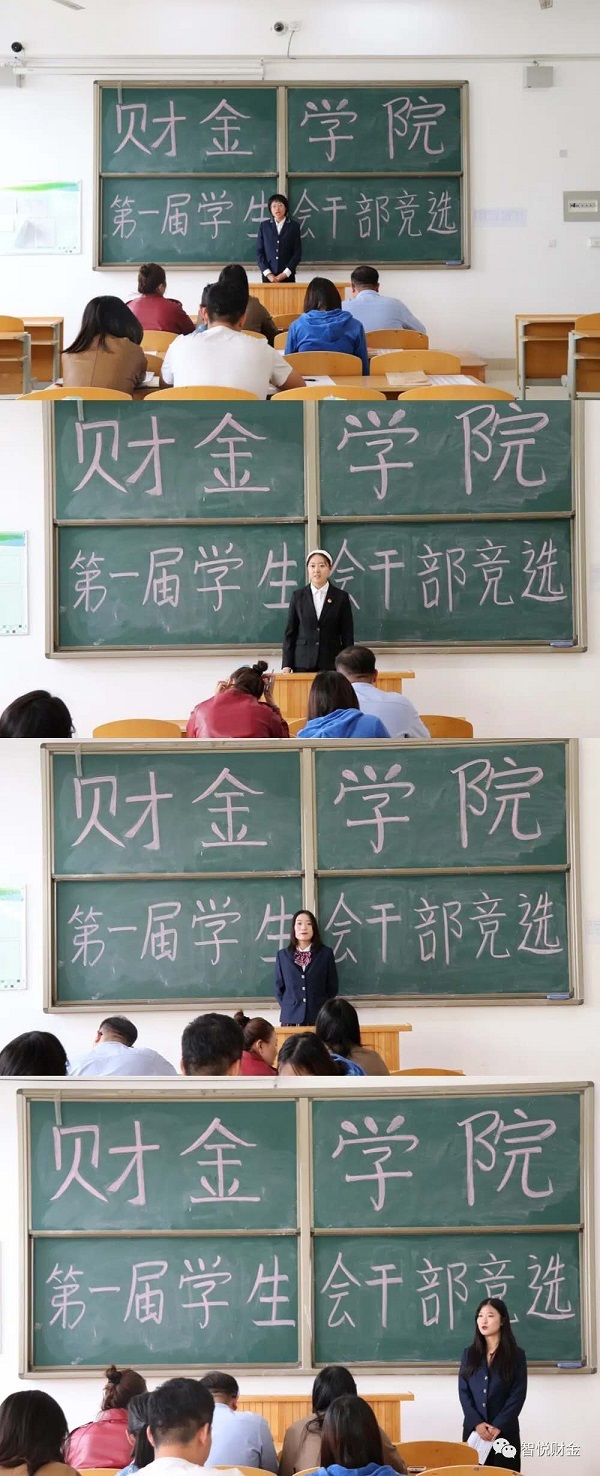 财金学院
第一届学生会干部竞选
财金学院
第一届学生会干部竞选
财金学院
第一届学生会干部竞选
财金学院
第一届学生会干部竞选
智悦财金